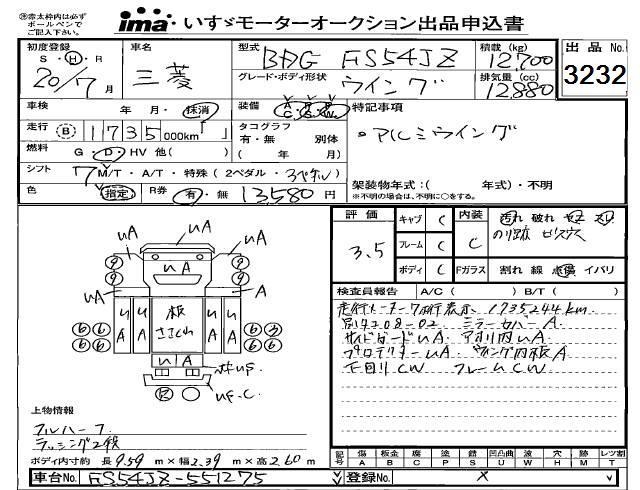 注赤太枠内は必ず
ボールペンで
ご記入下さい。
ima いすゞモーターオークション出品申込書
初度登録 車名 型式 積載 (kg) 出品No.
S・H・R 三菱 BDG FS54JZ 12,700
20/7月 グレード・ボディ形状 ウイング 排気量 (cc) 12,880 3232
車検 年・月・抹消 装備 特記事項
走行 B 1735 000km タコグラフ
有・無 別体
( 年 月)
・アルミウイング
燃料 G・D・HV 他( )
シフト 7 M/T・A/T・特殊(2ペダル・3ペダル) 架装物年式:( 年式)・不明
※不明の場合は、不明に○をする。
色 指定 R券 有・無 13,580 円
評価 キャブ C 内装 汚れ 破れ
3.5 フレーム C C のり跡 ビス穴
ボディ C Fガラス 割れ 線 点傷 イバリ
検査員報告 A/C( ) B/T( )
1735244km
ミラーカバーA
サイドガードUA アオリ内UA
プロテクターUA ウイング内板A
下回りCW フレームCW
UA
UA UA
9 9
9 UA 9
UA A
UA UA 板 ささくれ UA UA
6 6 6 3
6 6 6 6
UA
UF
UF.C
12
上物情報
フルハーフ
ラッシング2段
ボディ内寸約 長9.59 m×幅2.39 m×高2.60 m
記号 傷 板金 腐 塗 錆 凹凸曲 波 穴 跡 レツ割
A B C P S U W H M T
車台No. FS54JZ-551275 登録No. ×